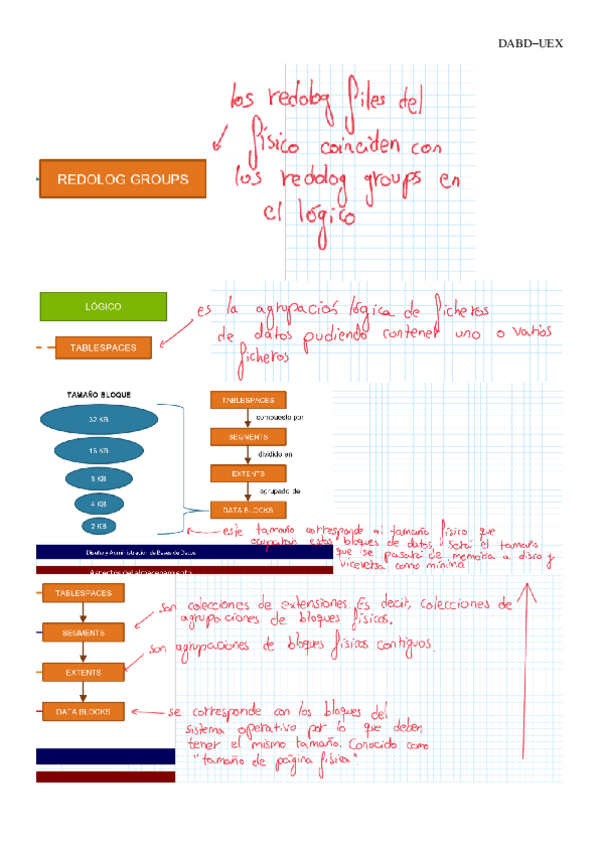 DABD–UEX
los redolog files del
físico coinciden con
los redolog groups en
el lógico
REDOLOG GROUPS
LÓGICO
TABLESPACES
es la agrupación lógica de ficheros
de datos pudiendo contener uno o varios
ficheros
TAMAÑO BLOQUE
32 KB
16 KB
8 KB
4 KB
2 KB
TABLESPACES
compuesto por
SEGMENTS
dividido en
EXTENTS
agrupado de
DATA BLOCKS
este tamaño corresponde al tamaño físico que
ocuparán estos bloques de datos, será el tamaño
que se pasará de memoria a disco y
viceversa como mínima
Diseño y Administración de Bases de Datos
Aspectos del almacenamiento
TABLESPACES
SEGMENTS
EXTENTS
DATA BLOCKS
son colecciones de extensiones. Es decir, colecciones de
agrupaciones de bloques físicos.
son agrupaciones de bloques físicos contiguos.
se corresponde con los bloques del
sistema operativo por lo que deben
tener el mismo tamaño. Conocido como
"tamaño de página física".